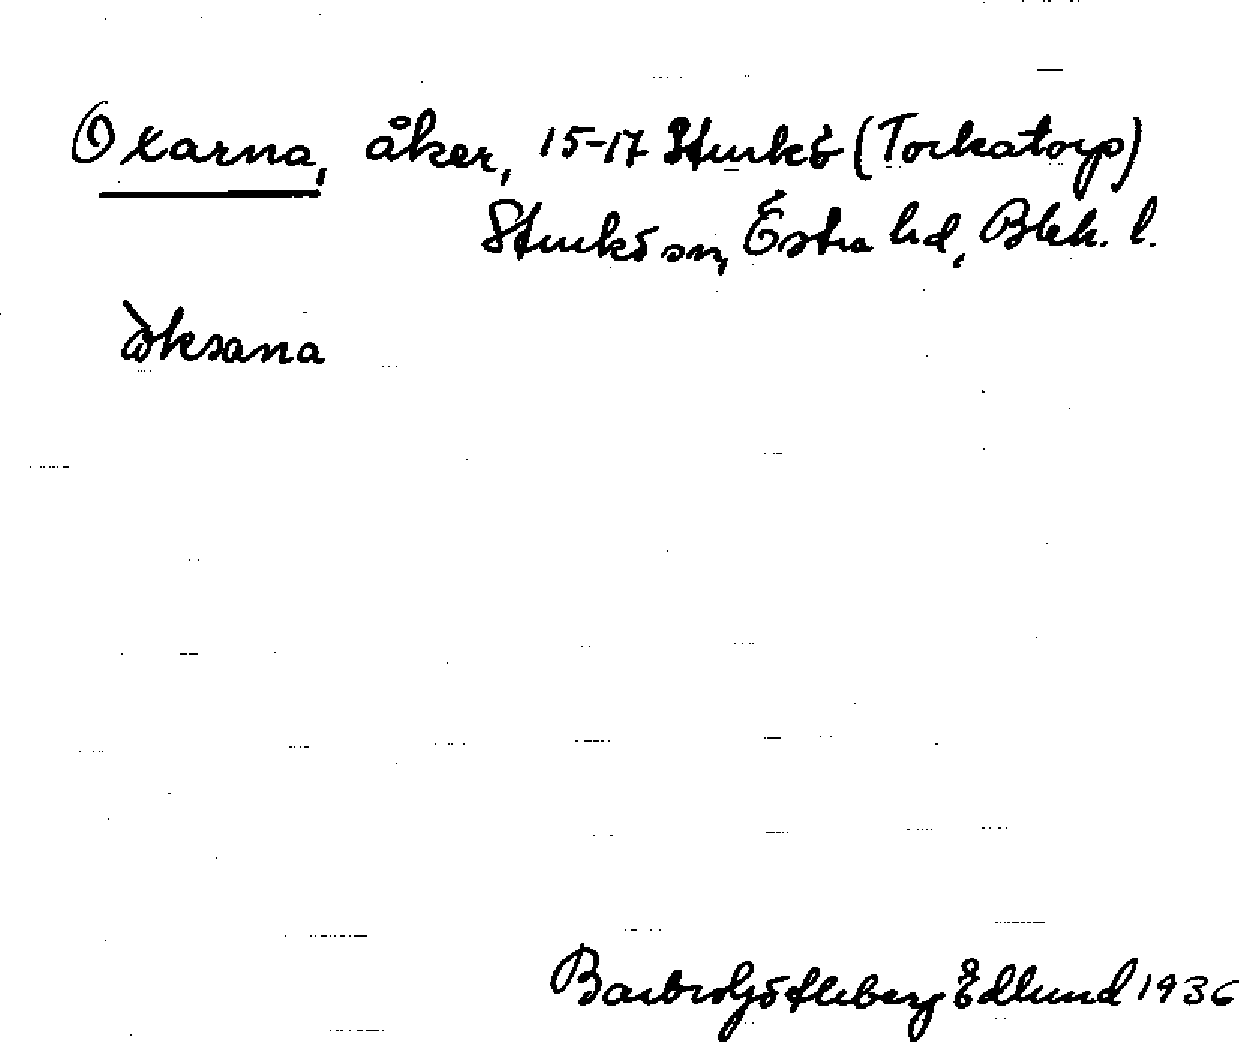 Oxarna, åker, 15-17 Sturkö (Torkatorp)
Sturkö sn, Östra hd, Blek. l.
òksana
Barbro Götleberg Edlund 1936